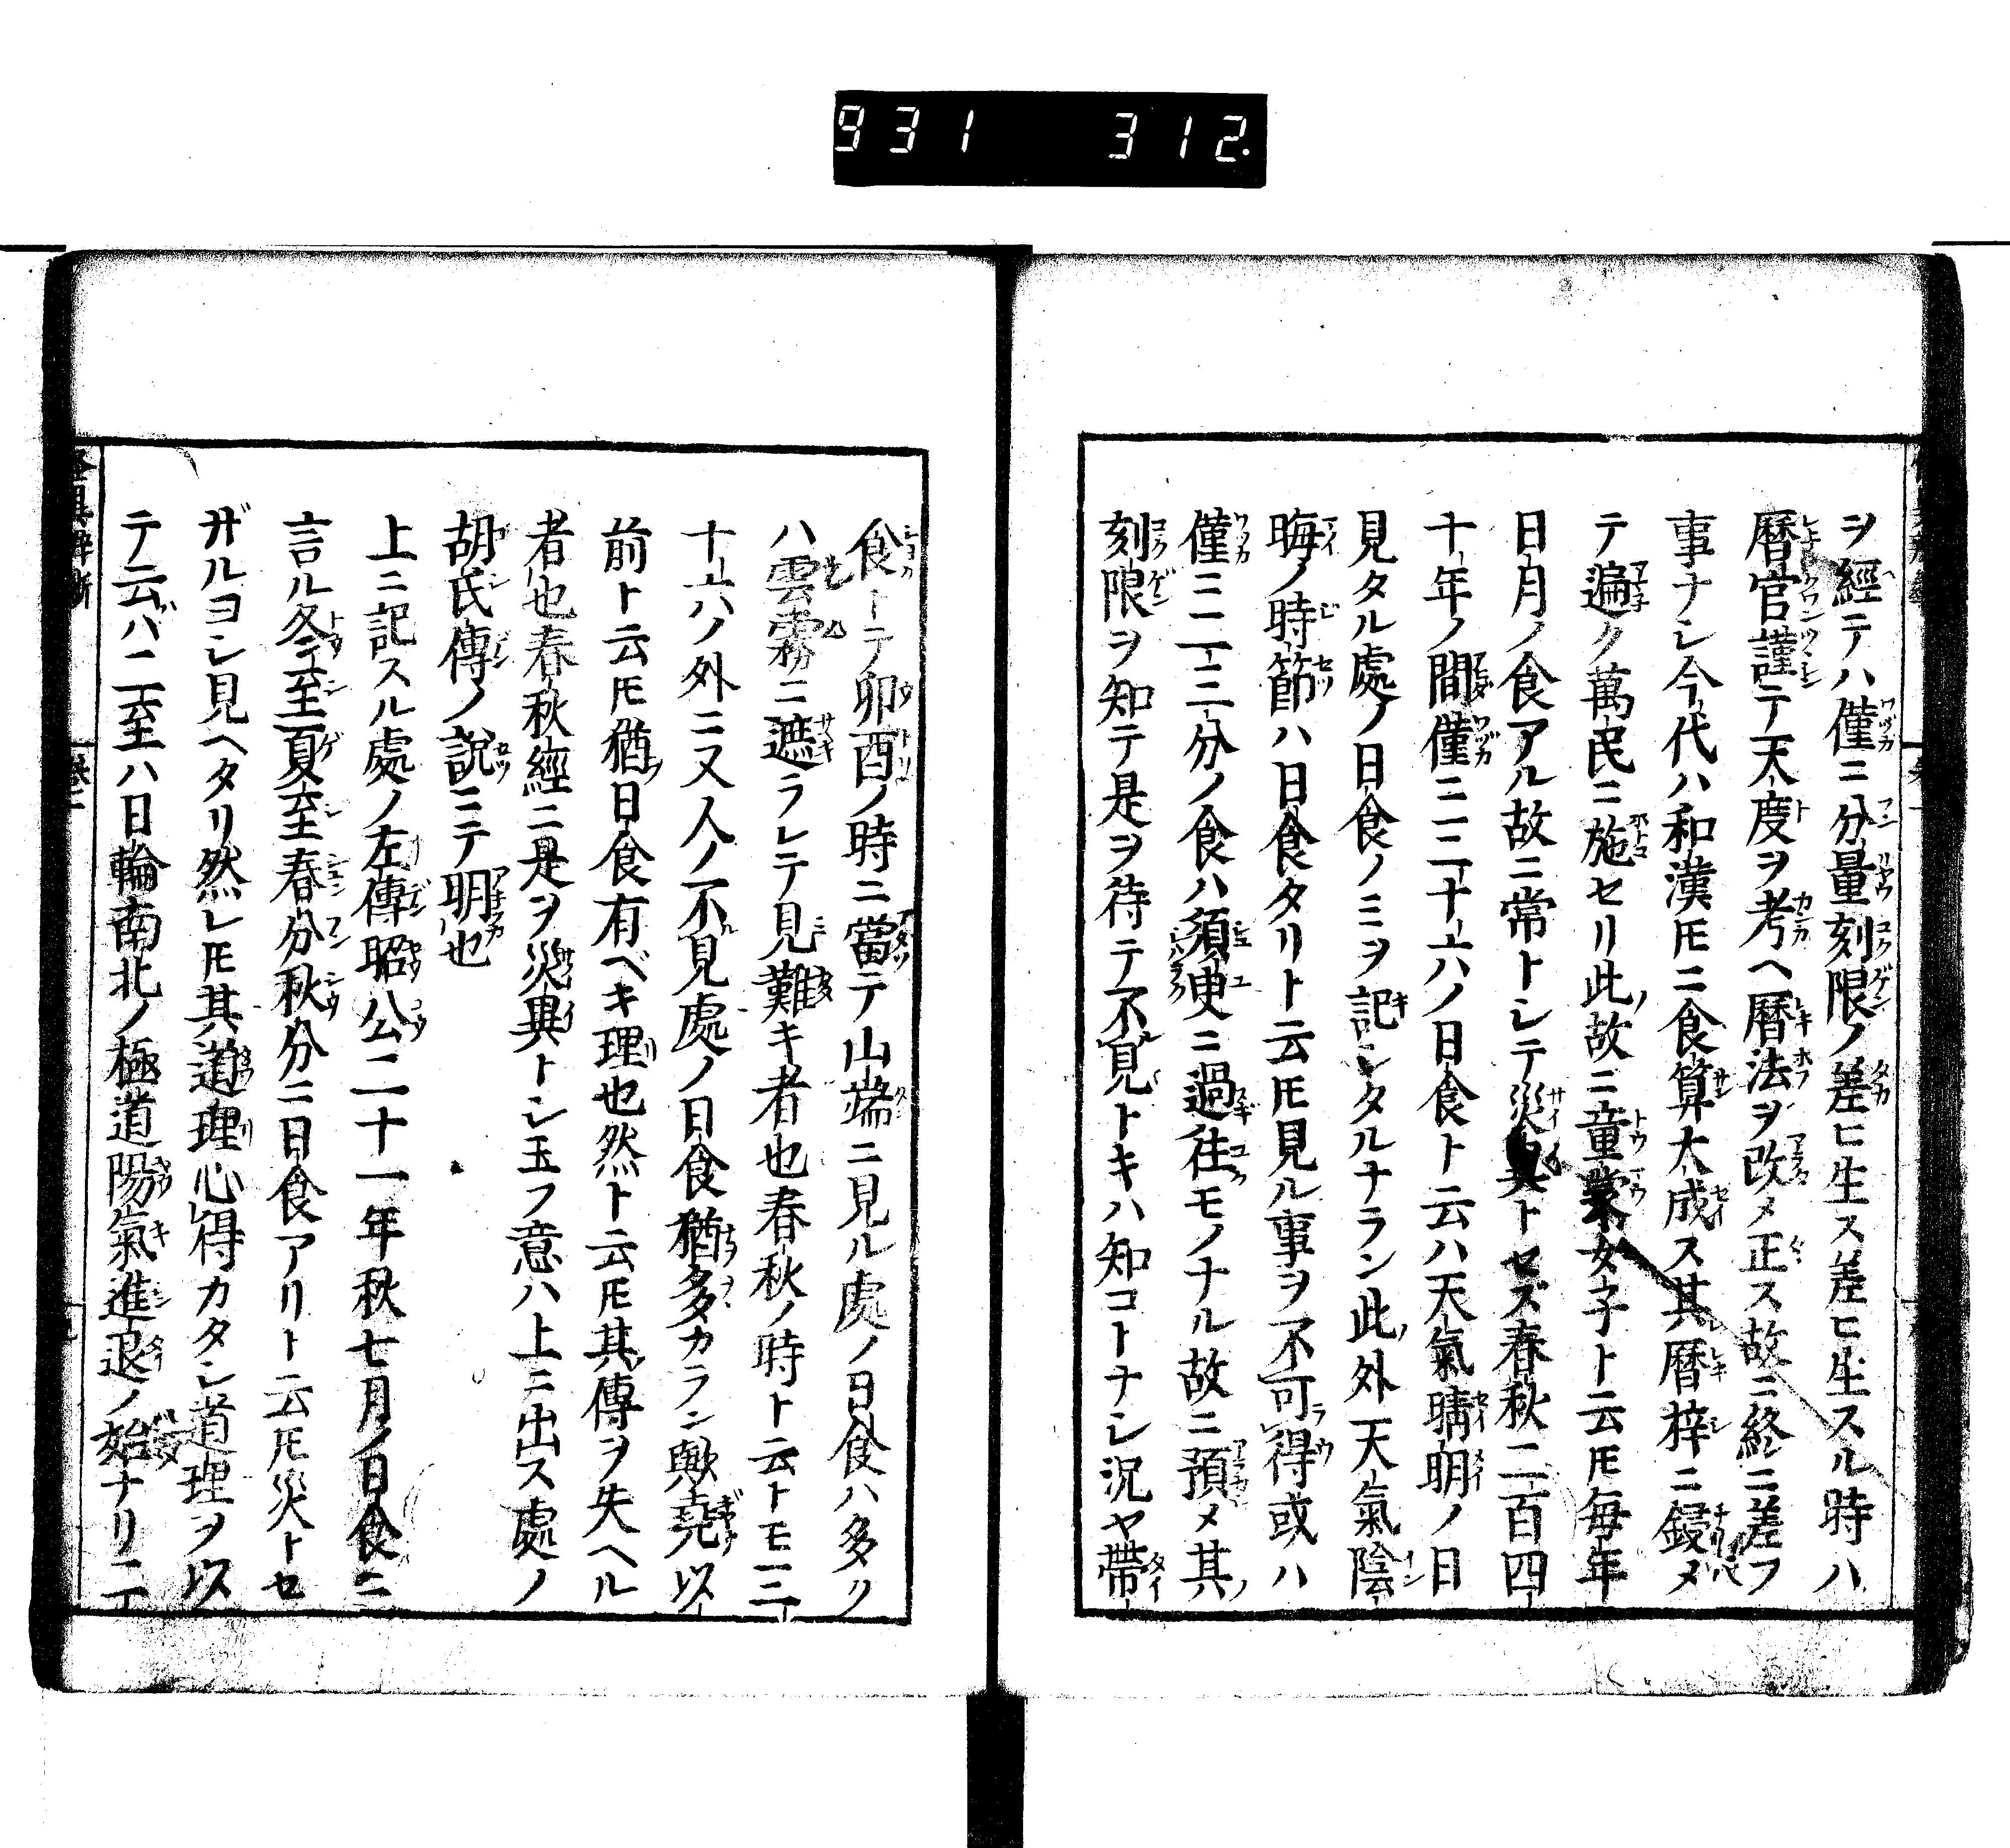 931 312.
ヲ經テハ僅ニ分量刻限ノ差ヒ生ス差ヒ生スル時ハ
暦官謹テ天度ヲ考ヘ暦法ヲ改メ正ス故ニ終ニ差フ
事ナシ今代ハ和漢𪜈ニ食算大成ス其暦梓ニ鋟メ
テ遍ク萬民ニ施セリ此故ニ童蒙女子ト云𪜈毎年
日月ノ食アル故ニ常トシテ災異トセズ春秋二百四
十年ノ間僅ニ三十六ノ日食ト云ハ天氣晴明ノ日
見タル處ノ日食ノミヲ記シタルナラン此外天氣陰
晦ノ時節ハ日食タリト云𪜈見ル事ヲ不可得或ハ
僅ニ二三分ノ食ハ須臾ニ過往モノナル故ニ預メ其
刻限ヲ知テ是ヲ待テ不見トキハ知コトナシ況ヤ帶
食トテ卯酉ノ時ニ當テ山端ニ見ル處ノ日食ハ多ク
ハ雲霧ニ遮ラレテ見難キ者也春秋ノ時ト云トモ三
十六ノ外ニ又人ノ不見處ノ日食猶多カラン歟堯以
前ト云𪜈猶日食有ベキ理也然ト云𪜈其傳ヲ失ヘル
者也春秋經ニ是ヲ災異トシ玉フ意ハ上ニ出ス處ノ
胡氏傳ノ說ニテ明也
上ニ記スル處ノ左傳昭公二十一年秋七月ノ日食ニ
言ル冬至夏至春分秋分ニ日食アリト云𪜈災トセ
ザルヨシ見ヘタリ然レ𪜈其道理心得カタシ道理ヲ以
テ云バ二至ハ日輪南北ノ極道陽氣進退ノ始ナリ二